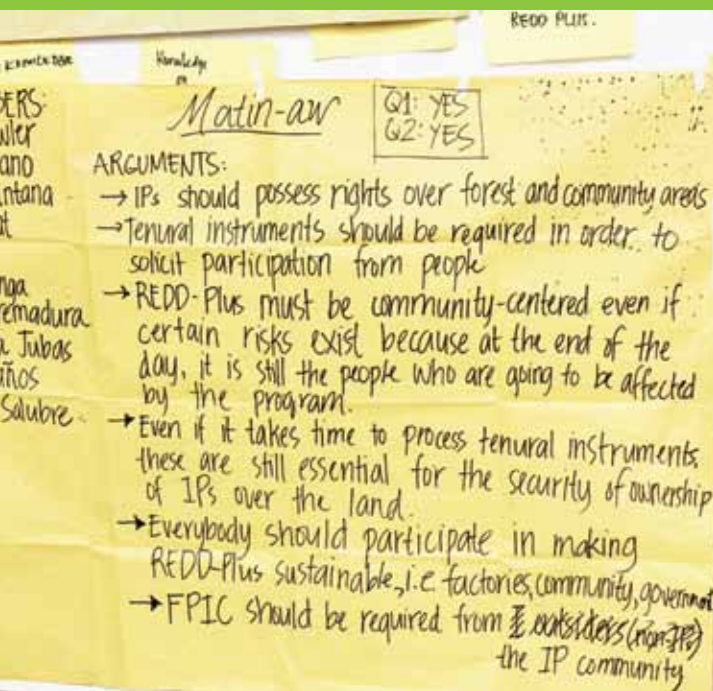 REDD PLUS.
Knowledge
Matin-aw
Q1: YES
Q2: YES
ARGUMENTS:
→ IPs should possess rights over forest and community areas
→ Tenural instruments should be required in order to
solicit participation from people
→ REDD-Plus must be community-centered even if
certain risks exist because at the end of the
day, it is still the people who are going to be affected
by the program.
→ Even if it takes time to process tenural instruments,
these are still essential for the security of ownership
of IPs over the land.
→ Everybody should participate in making
REDD-Plus sustainable, i.e factories, community, government
→ FPIC should be required from outsiders (non-IPs)
the IP community
BERS:
wler
ano
ntana
at
nga
remadura
a Jubas
años
Salubre